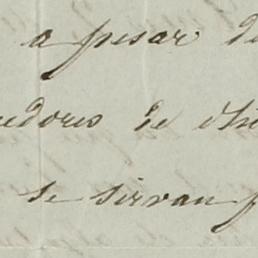 a pesar de
edores de
se sirvan